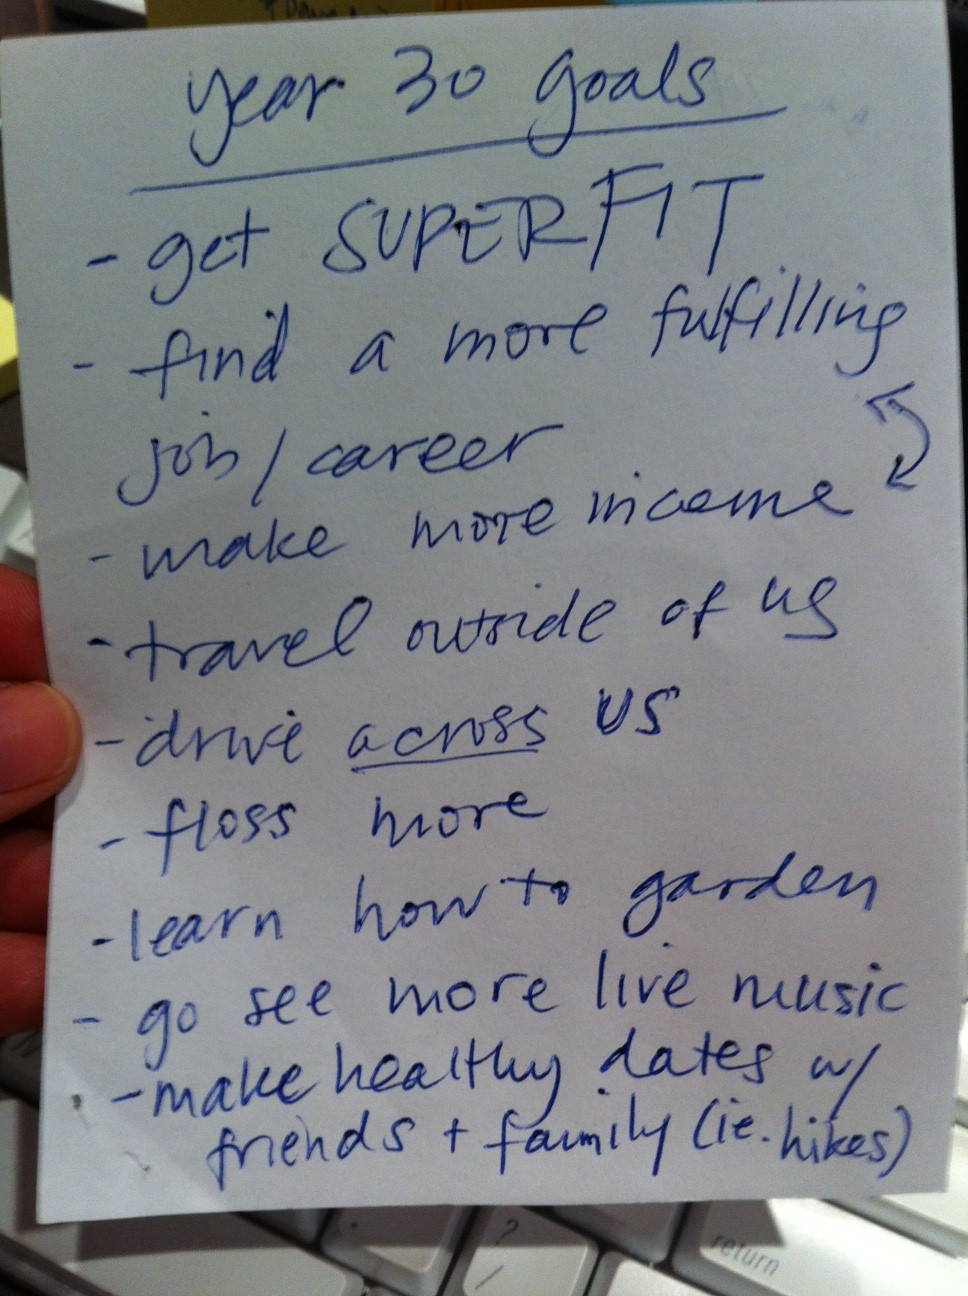 year 30 goals
- get SUPERFIT
- find a more fulfilling
job/career
- make more income
- travel outside of US
- drive across US
- floss more
- learn how to garden
- go see more live music
- make healthy dates w/
friends + family (ie. hikes)
?
/
return